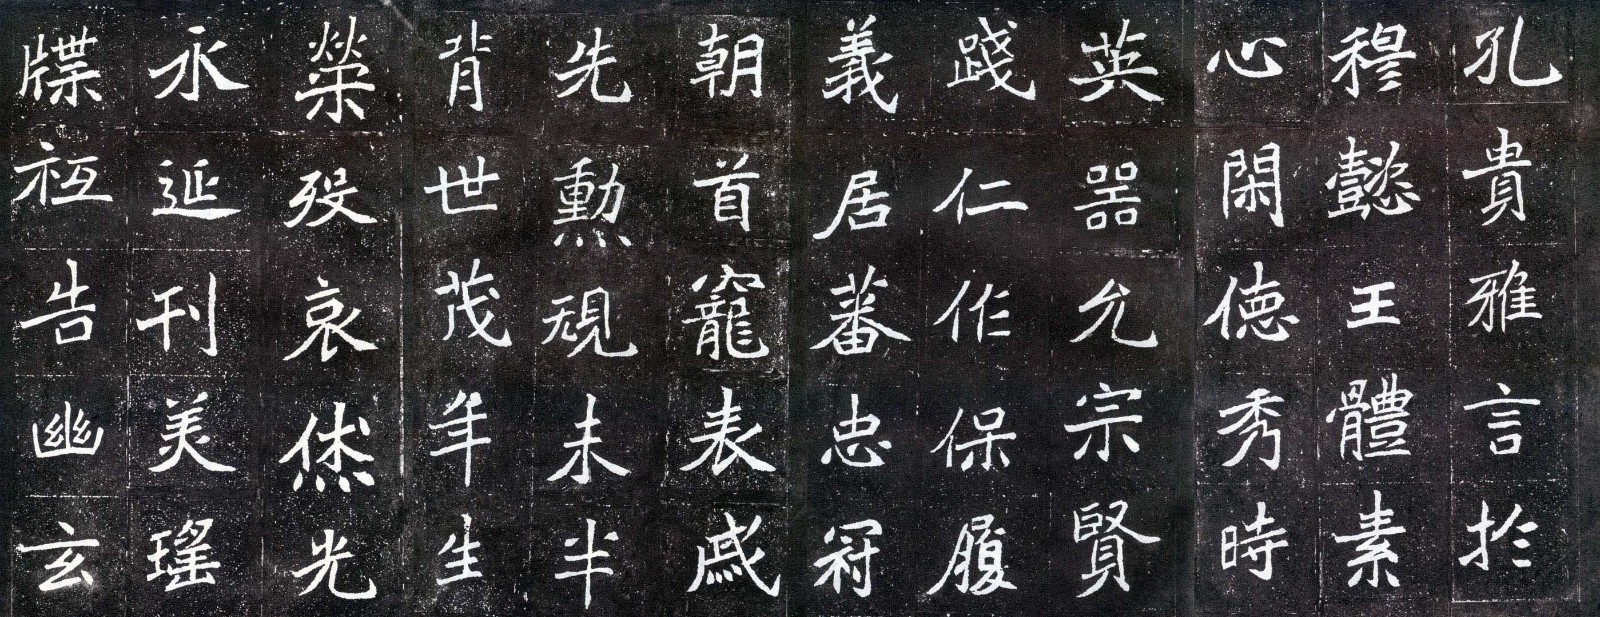 孔貴雅言於
穆懿王體素
心閑德秀時
英器允宗賢
踐仁作保履
義居蕃忠冠
朝首寵表戚
先勳規未半
背世茂年生
榮歿哀烋光
永延刊美瑤
牒祗告幽玄